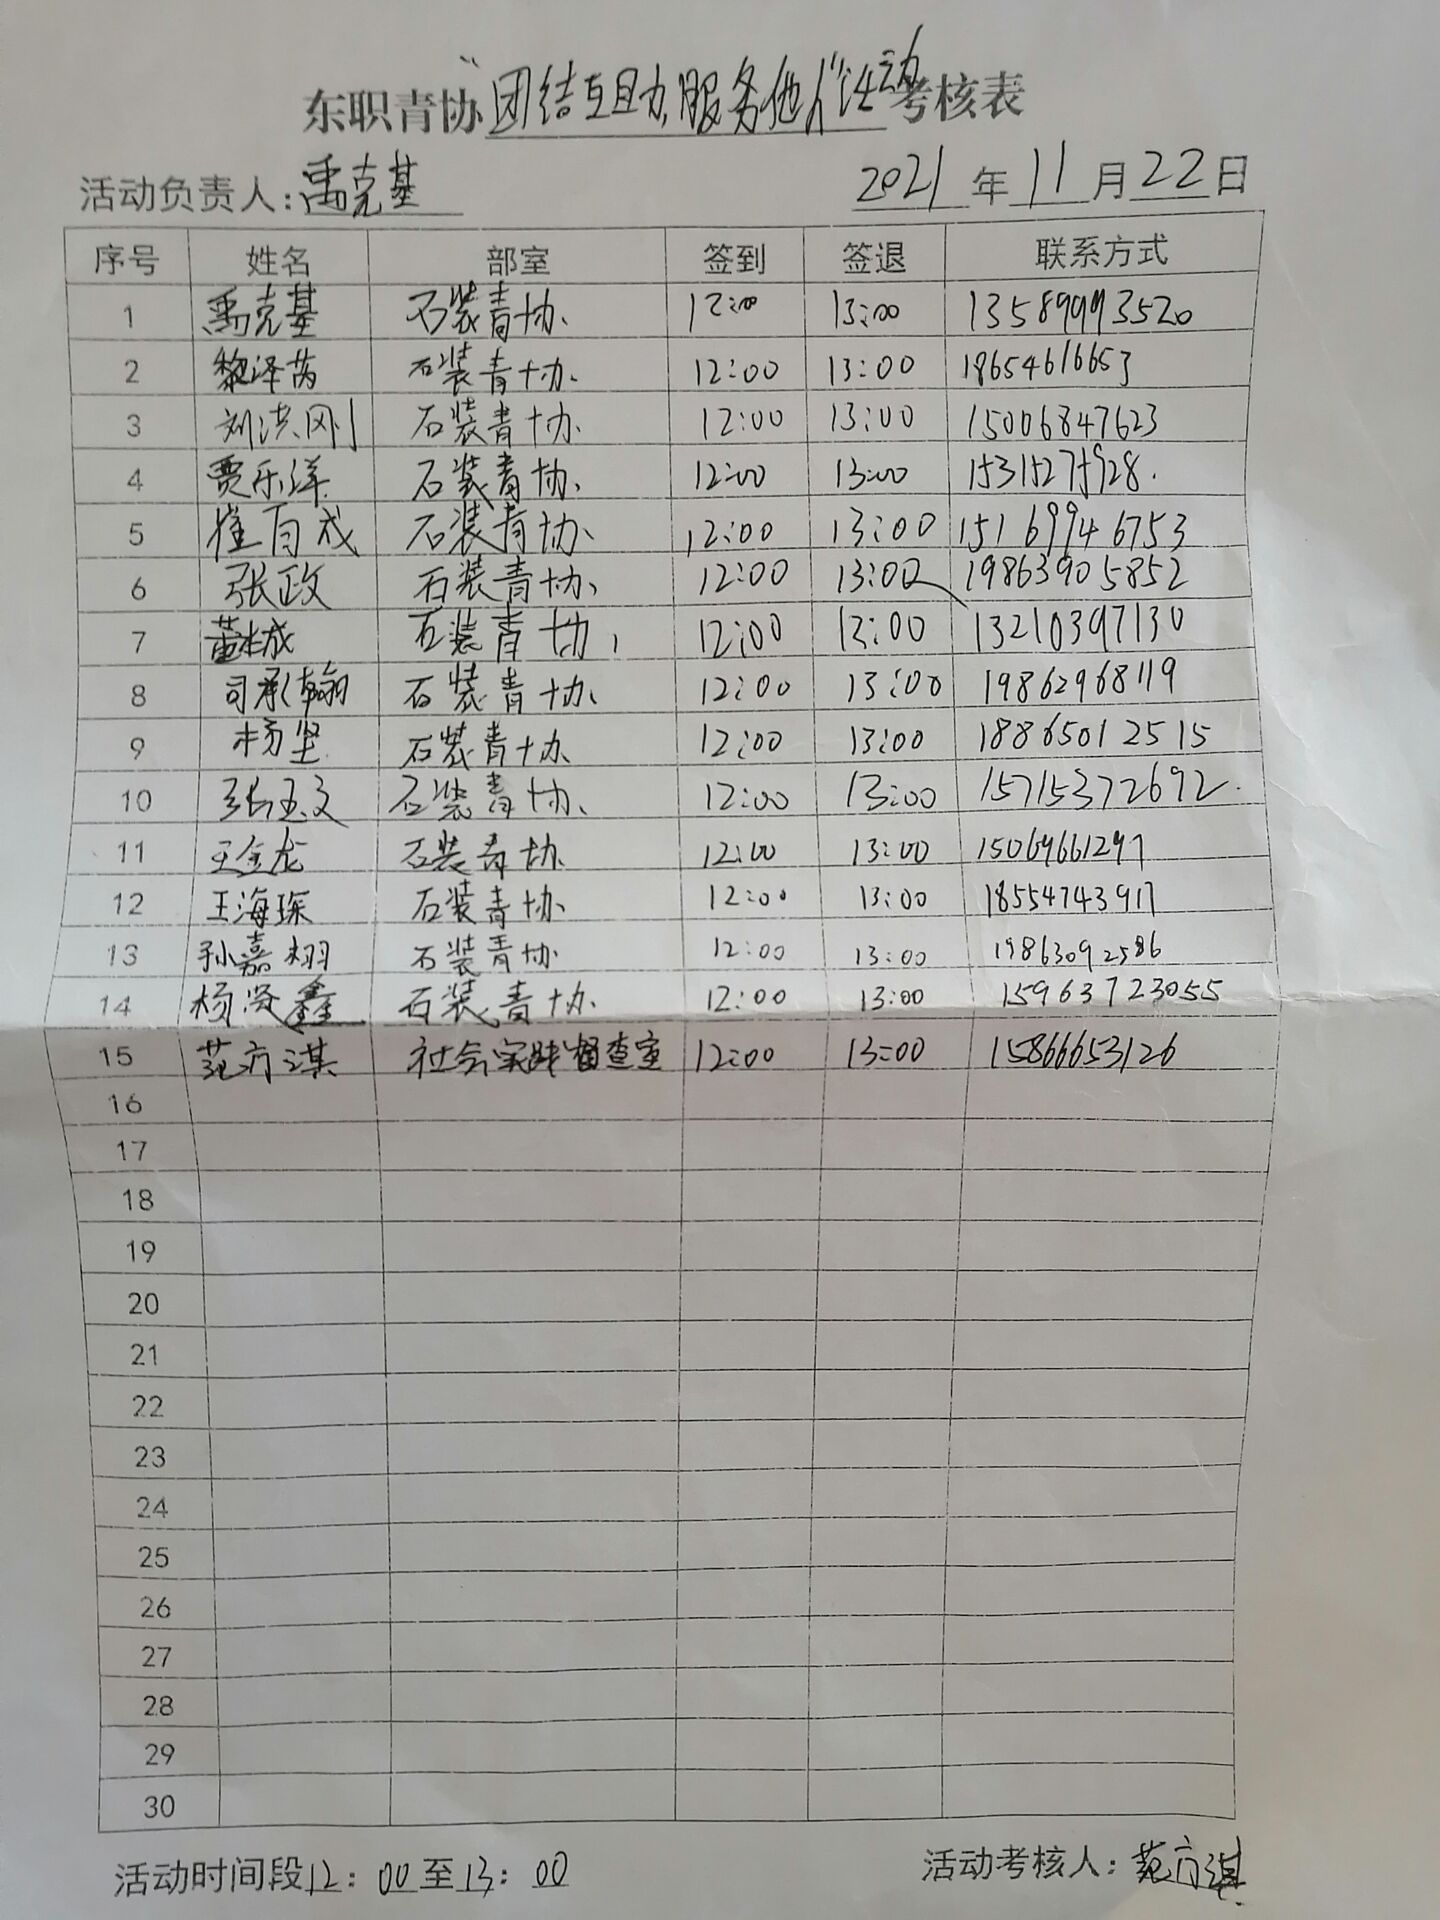 东职青协“团结互助,服务他人”活动考核表
活动负责人:禹克基 2021年11月22日
序号 姓名 部室 签到 签退 联系方式
1 禹克基 石装青协 12:00 13:00 13589993520
2 黎泽芮 石装青协 12:00 13:00 18654616653
3 刘洪刚 石装青协 12:00 13:00 15006847623
4 贾乐洋 石装青协 12:00 13:00 15315275928
5 崔百成 石装青协 12:00 13:00 15169946753
6 张政 石装青协 12:00 13:00 19863905852
7 董城 石装青协 12:00 13:00 13210397130
8 司承翰 石装青协 12:00 13:00 19862968119
9 杨坚 石装青协 12:00 13:00 18865012515
10 张玉文 石装青协 12:00 13:00 15715372692
11 王金龙 石装青协 12:00 13:00 15069661297
12 王海琛 石装青协 12:00 13:00 18554743917
13 孙嘉翊 石装青协 12:00 13:00 19863092586
14 杨贤鑫 石装青协 12:00 13:00 15963723055
15 范方淇 社会实践督查室 12:00 13:00 15866653126
16
17
18
19
20
21
22
23
24
25
26
27
28
29
30
活动时间段12:00至13:00 活动考核人:范方淇